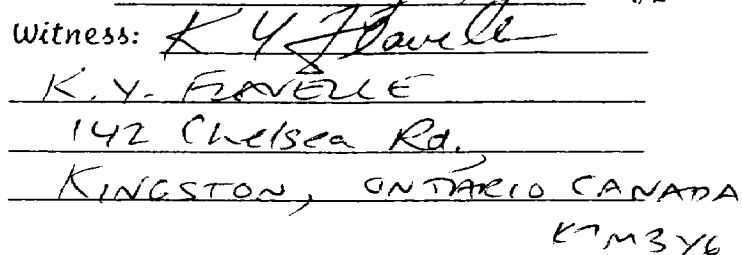 Witness: K Y Flavelle
K.Y. FLAVELLE
142 Chelsea Rd.,
KINGSTON, ONTARIO CANADA
K7M3Y6